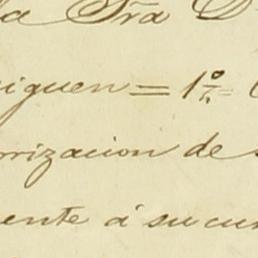 la Sra D
iguen = 1º =
rrizacion de
ente á su cu